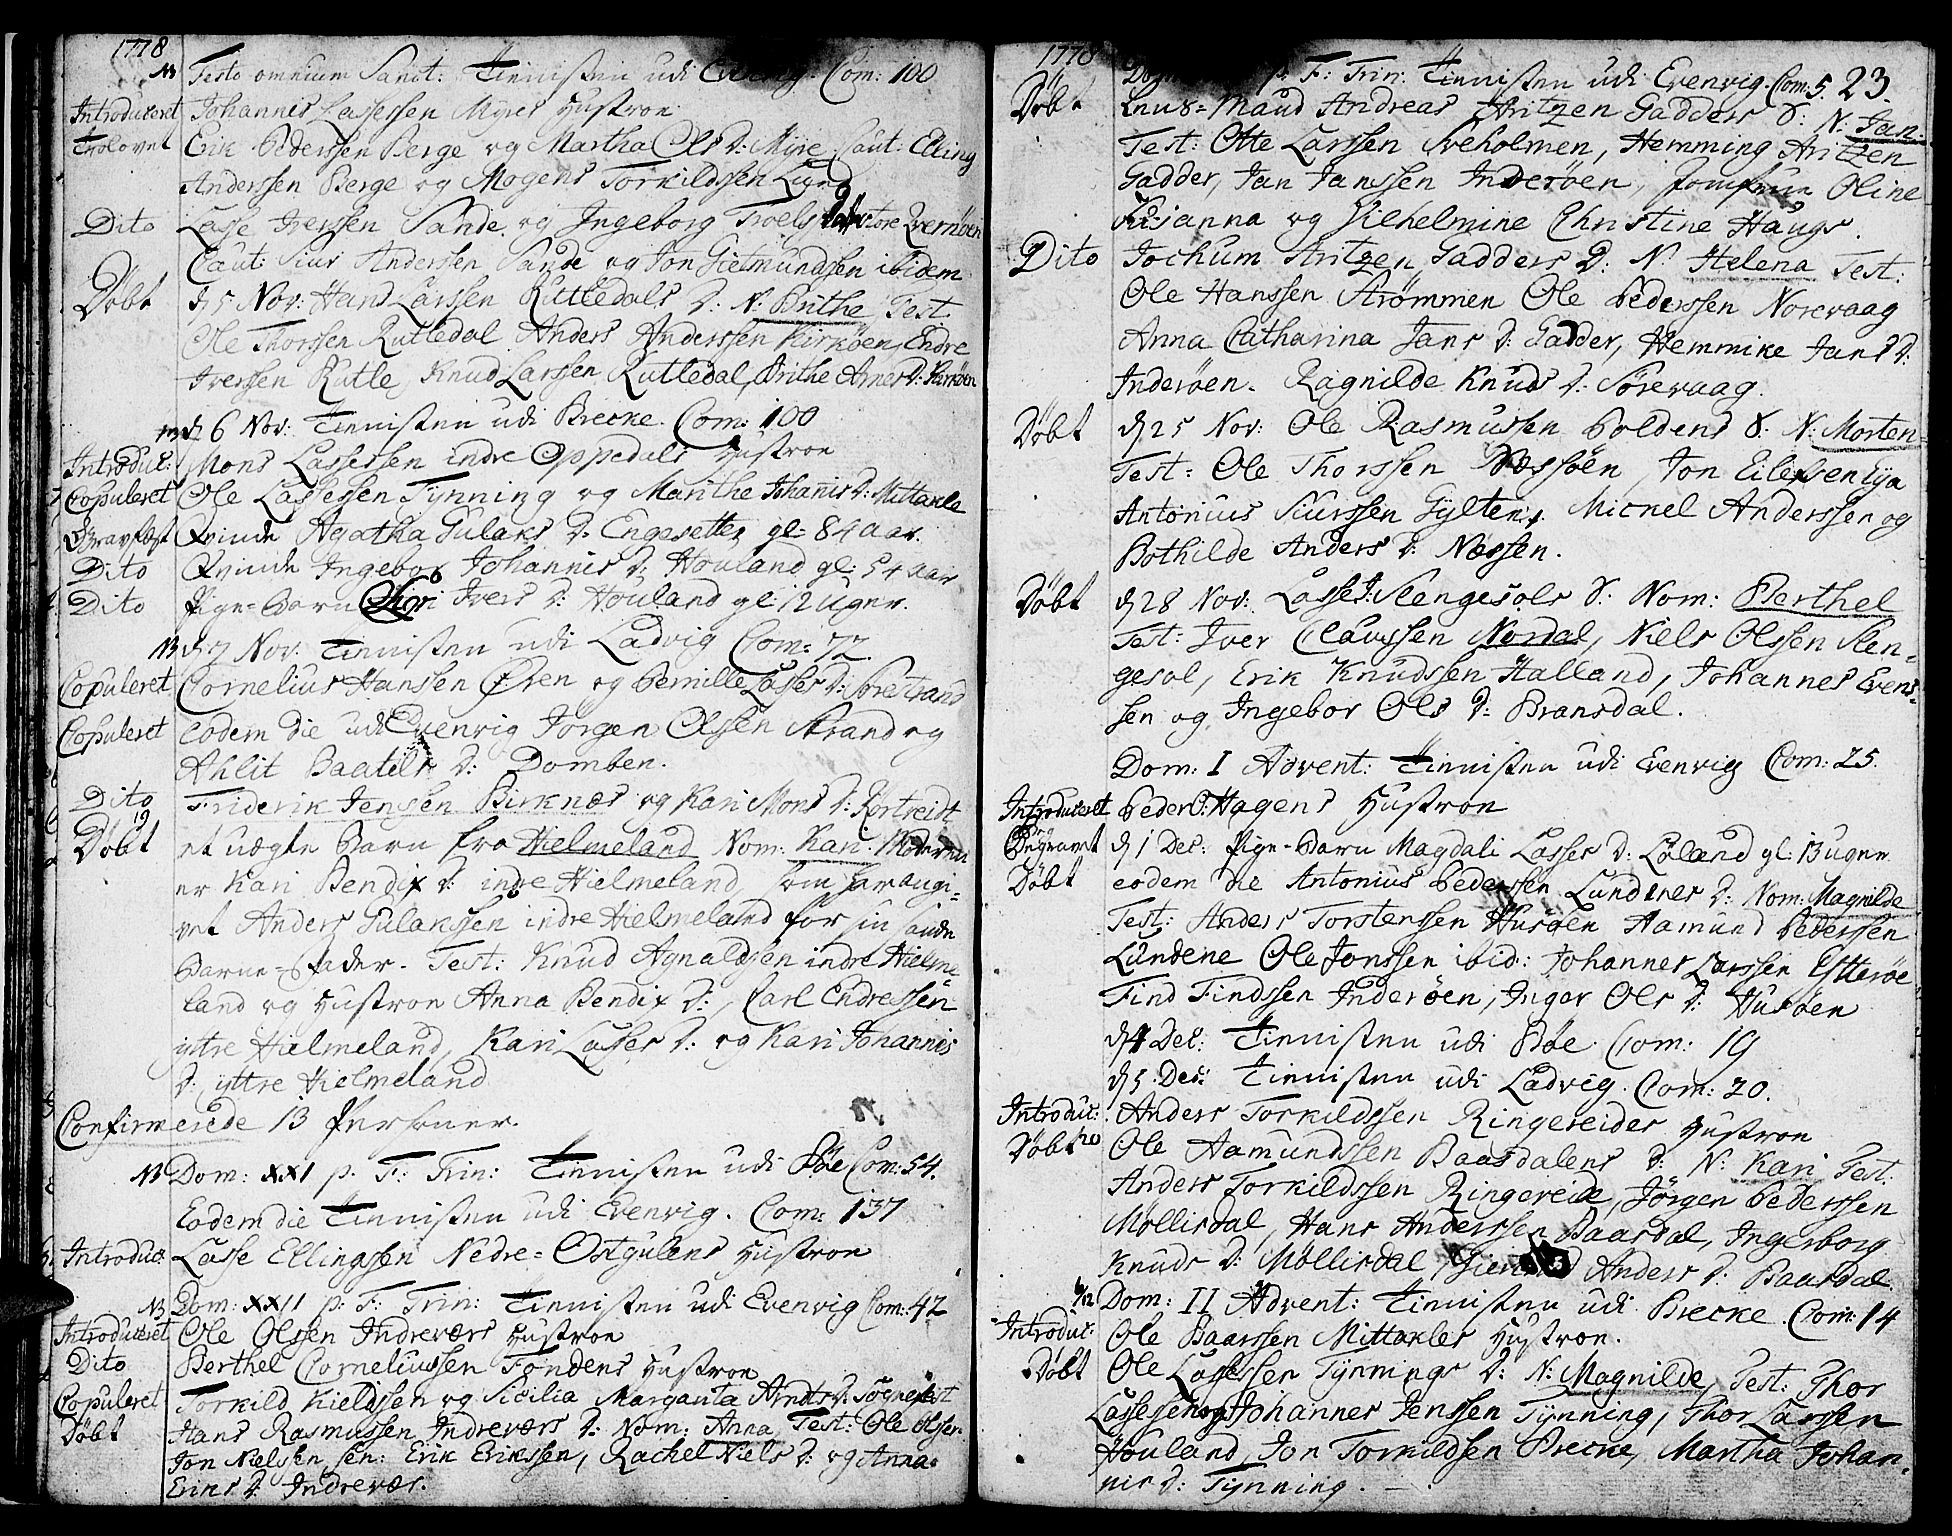 1778
NB Festo omnium Sanct: Tienisten udi Evenvig. Com: 100
Introduceret Johannes Lassesen Myres Hustroe
Trolovet Erik Pedersen Berge og Martha Ols D: Myre. Caut: Elling
Anderssen Berge og Mogens Torkildssen Lund
Dito Lasse Iverssen Sande og Ingeborg Troels Store Qvernøen
Caut: Siur Anderssen Sande og Jon Gietmundssen ibidem
Døbt d 5 Nov: Hans Larssen Rutledals D: N: Brithe Test
Ole Thorssen Rutledal Anders Anderssen Kirkøen, Endre
Iverssen Rutle, Knud Larssen Rutledal, Brithe Arnes D: Kirkøen
NB d 6 Nov: Tienisten udi Brecke. Com: 100
Introduc: Mons Lassessen Indre Oppedals Hustroe
Copuleret Ole Lassessen Tynning og Marithe Johannis D: Mittakle
Begravet Qvinde Agatha Gulaks D: Engesetter gl: 84 aar.
Dito Qvinde Ingebor Johannis D: Houland gl: 54 aar
Dito Pige-Barn Siri Ivers D: Houland gl: 12 uger.
NB d 7 Nov: Tienisten udi Ladvig Com: 72.
Copuleret Cornelius Hanssen Øren og Pernille Lasses D: Sørestrand
Copuleret eodem die udi Evenvig Jørgen Olssen Strand og
Ahlit Baatels D: Domben.
Dito Friderik Jenssen Birknæs og Kari Mons D: Rortveidt
Døbt 19 et uægte Barn fra Hielmeland Nom: Kari. Moderen
er Kari Bendix D: indre Hielmeland, som har angi-
vet Anders Gulakssen indre Hielmeland for sin sande
Barne-Fader. Test: Knud Agnaldsen indre Hielme
land og Hustroe Anna Bendix D:, Carl Endressen
yttre Hielmeland, Kari Lasses D: og Kari Johannis
D: yttre Hielmeland
Confirmerede 13 Personer.
NB Dom: XXI p. F: Trin: Tienisten udi Bøe Com: 54.
Eodem die Tienisten udi Evenvig. Com: 137
Introduc: Lasse Ellingssen Nedre-Ostgulens Hustroe
NB Dom: XXII p: F: Trin: Tienisten udi Evenvig Com: 42
Introduceret Ole Olssen Indreværs Hustroe
Dito Berthel Corneliussen Fondens Hustroe
Copuleret Torkild Kieldssen og Sicilia Margareta Arnts D: Sognefest
Døbt Hans Rasmussen Indreværs D: Nom: Anna Test: Ole Olssen
Jon Nielssen, sen: Erik Erikssen, Rachel Niels D: og Anna
Eriks D: Indrevær.
1778
p: F: Trin: Tienisten udi Evenvig. Com: 5. 23.
Døbt Knus-Maud Andreas Fritzen Gadders S: N: Jan:
Test: Otte Larssen Sveholmen, Hemming Fritzen
Gadder, Jan Janssen Inderøen, Jomfrue Oline
Susanna og Vilhelmine Christine Haugs.
Dito Jochum Fritzen Gadders D: N: Helena Test:
Ole Hanssen Strømmen Ole Pederssen Norevaag
Anna Catharina Jans D: Gadder, Hemmike Jans D:
Inderøen. Ragnilde Knuds D: Sørevaag.
Døbt d 25 Nov: Ole Rasmussen Poldens S: N: Morten
Test: Ole Thorssen Næssøen Jon Eilefsen Rya
Antonius Siurssen Gylten, Mickel Anderssen og
Bothilde Anders D: Næssen.
Døbt d 28 Nov: Lasse I: Slengesols S: Nom: Berthel
Test: Iver Claussen Nordal, Niels Olssen Slen-
gesol, Erik Knudssen Halland, Johannes Evens-
sen og Ingebor Ols D: Bransdal.
Dom: I Advent: Tienisten udi Evenvig Com: 25.
Introduceret Peder Hagens Hustroe
Begravet d 1 Dec: Pige-Barn Magdali Lasses D: Laland gl: 13 uger.
Døbt eodem die Antonius Pederssen Lundenes D: Nom: Magnilde
Test: Anders Torstenssen Husøen Aamund Pederssen
Lundene Ole Jonssen ibid: Johannes Larssen Ytterøe
Find Findssen Inderøen, Inger Ols D: Husøen
d 4 Dec: Tienisten udi Bøe Com: 19
d 5 Dec: Tienisten udi Ladvig. Com: 20.
Introduc: Anders Torkildssen Ringereides Hustroe
Døbt Ole Aamundssen Baasdalens D: N: Kari Test:
Anders Torkildssen Ringereide, Jørgen Pederssen
Møllisdal, Hans Anderssen Baasdal, Ingerborg
Knuds D: Møllisdal, Anders D: Baasdal.
6/12 Dom: II Advent: Tienisten udi Brecke Com: 14
Introduc: Ole Baarssen Mittakles Hustroe.
Døbt Ole Lassessen Tynnings D: N: Magnilde, Test: Thor
Lassessen og Johannes Jenssen Tynning, Thor Larssen
Houland, Jon Torkildssen Brecke, Martha Johan-
nis D: Tynning.